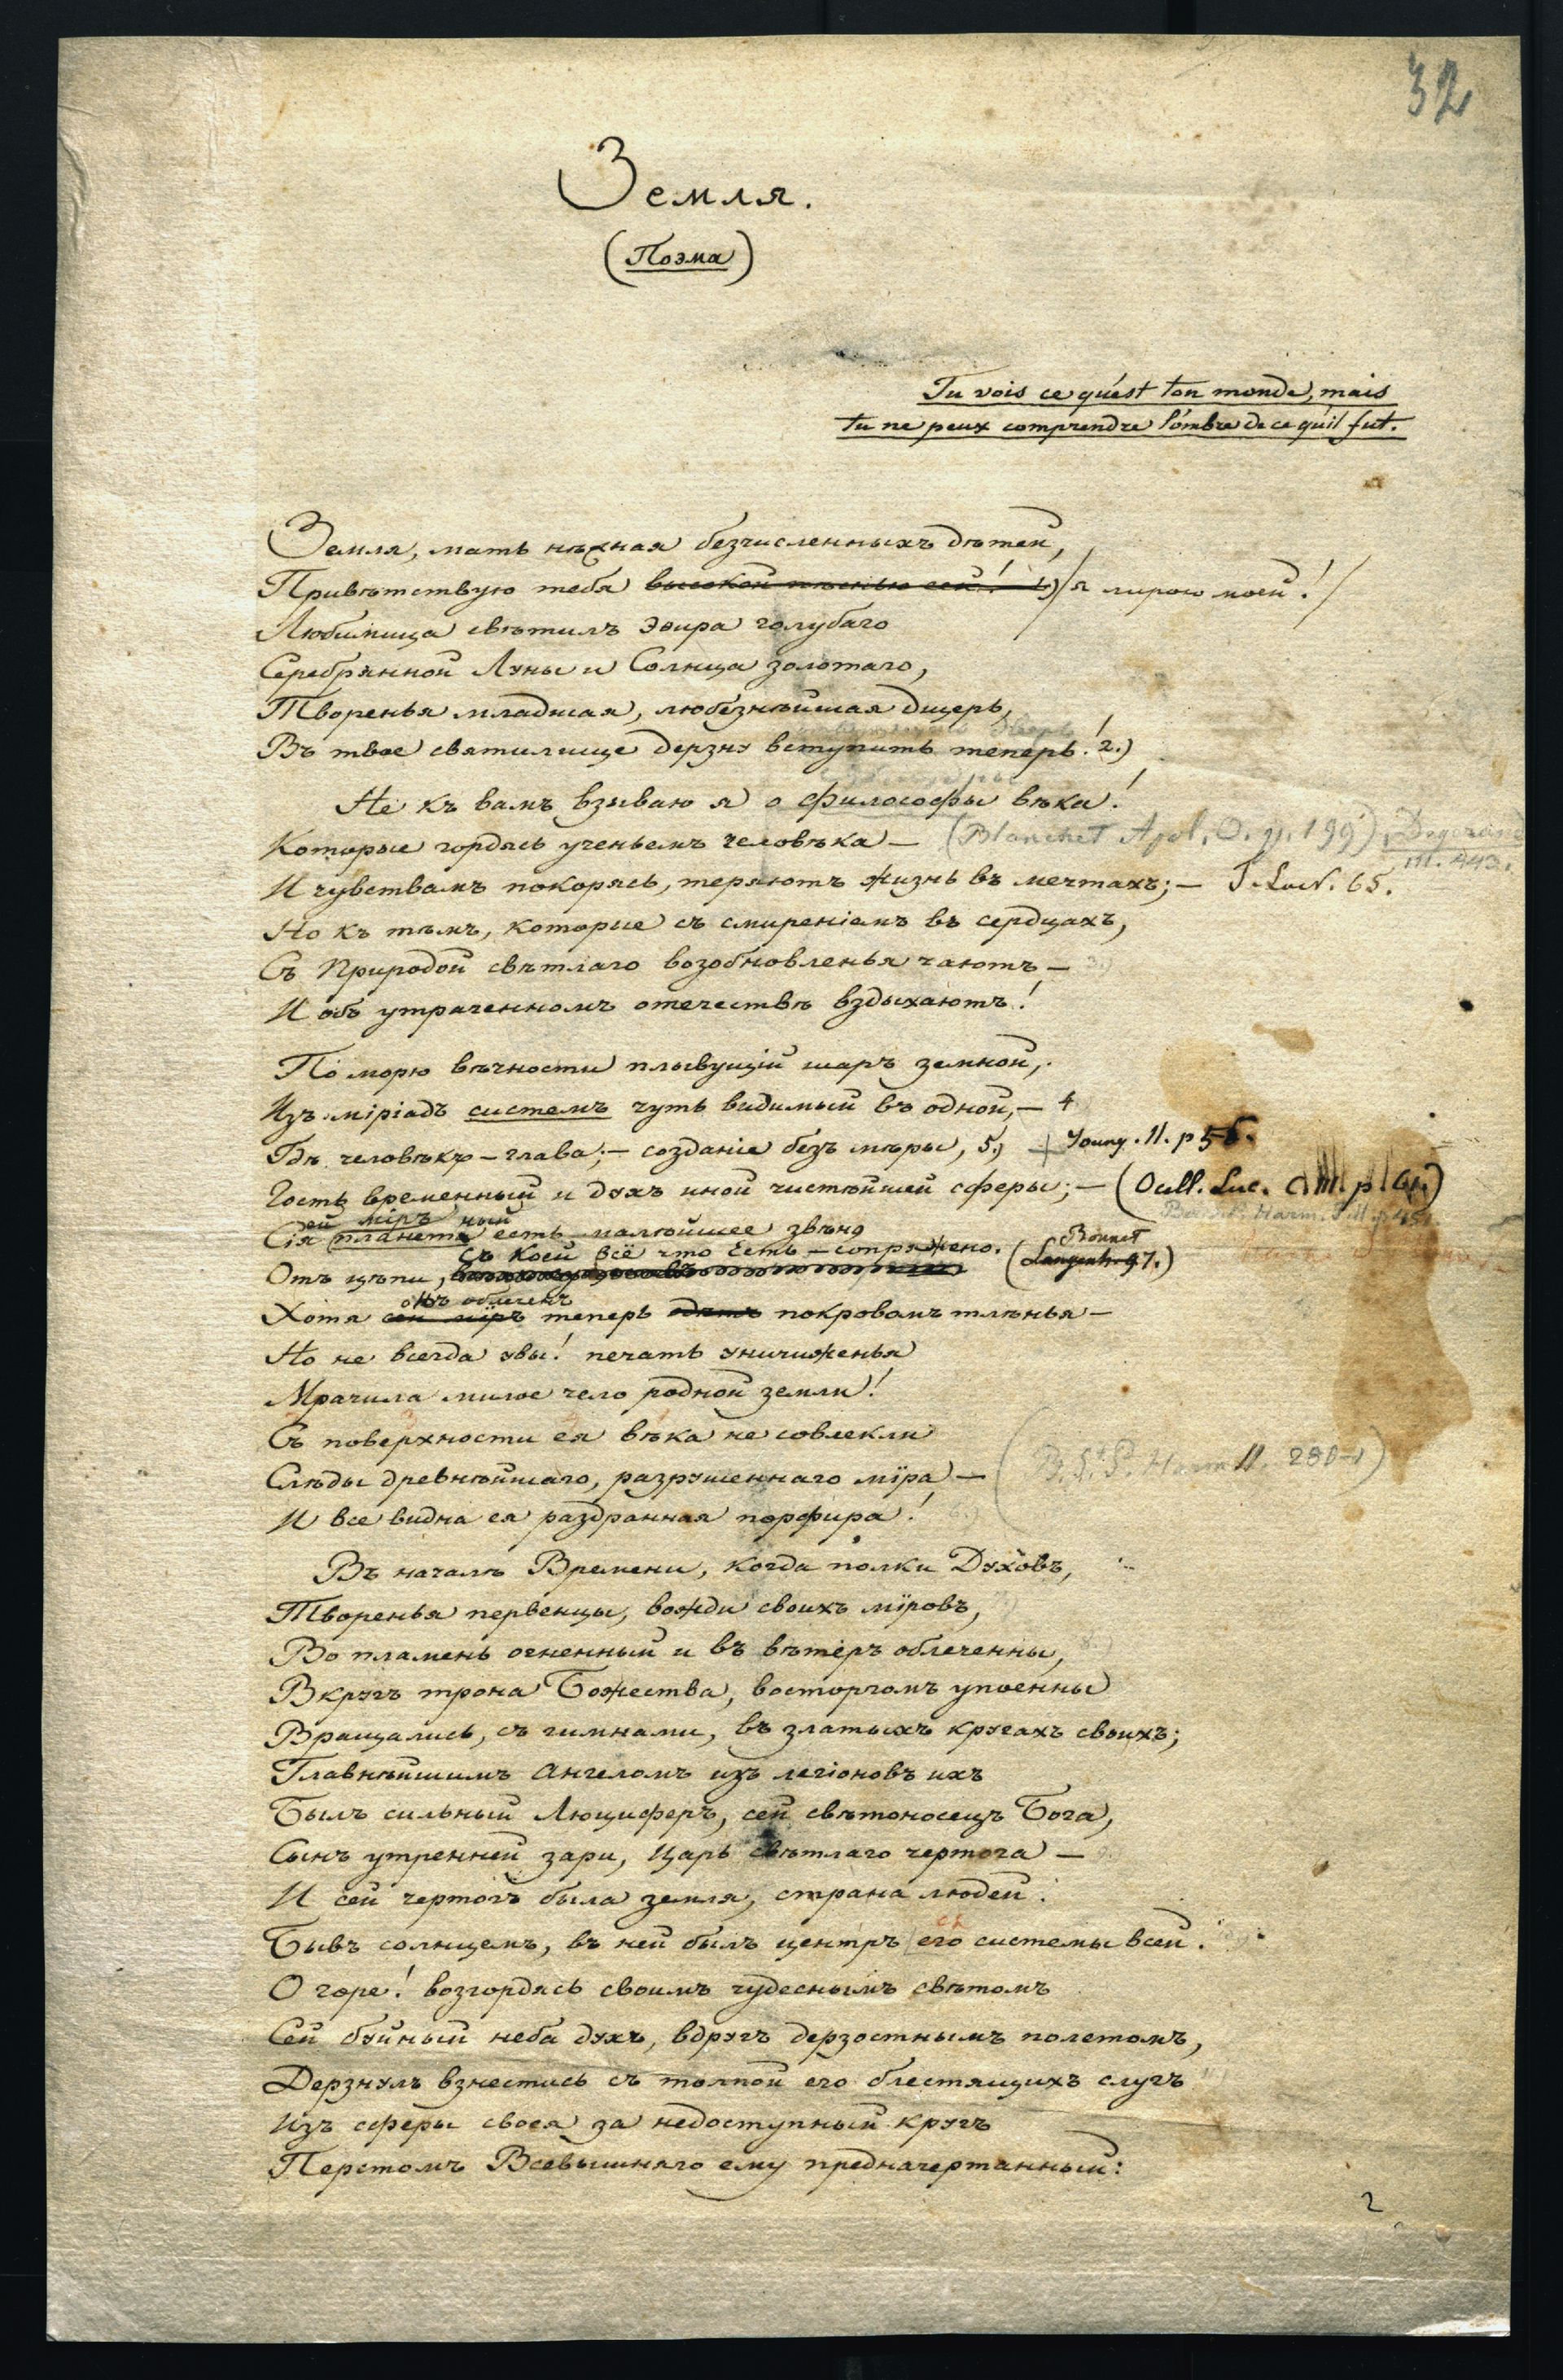 32
Земля.
(Поэма)
Tu vois ce qu'est ton monde, mais
tu ne peux comprendre l'ombre de ce qu'il fut.
Земля, мать нѣжная безчисленныхъ дѣтей,
Привѣтствую тебя высокой пѣснью сей! 1) я лирою моей!
Любимица свѣтилъ эѳира голубаго
Серебрянной Луны и Солнца золотаго,
Творенья младшая, любезнѣйшая дщерь,
Въ твое святилище дерзну вступить теперь! 2.)
Не къ вамъ взываю я о философы вѣка!
Которые гордясь ученьемъ человѣка — (Blanchet Apol. O. p. 199)
III. 443.
И чувствамъ покорясь, теряютъ жизнь въ мечтахъ; — 65.
Но къ тѣмъ, которые съ смиреніемъ въ сердцахъ,
Съ Природой свѣтлаго возобновленья чаютъ — 3.)
И объ утраченномъ отечествѣ вздыхаютъ!
По морю вѣчности плывущій шаръ земной,
Изъ міріадъ системъ чуть видимый въ одной, — 4
Гдѣ человѣкъ — глава; — созданіе безъ мѣры, 5.) + Young. II. p 56.
Гость временный и духъ иной чистѣйшей сферы; — (Ocul. Luc.
ей міръ ный
Сія планета есть малѣйшее звѣно
съ коей всё что есть — сопряжено. Bonnet
Отъ цѣпи, 97.)
онъ облеченъ
Хотя сей міръ теперь одѣтъ покровомъ тлѣнья —
Но не всегда увы! печать уничиженья
Мрачила милое чело родной земли!
Съ поверхности ея вѣка не совлекли
Слѣды древнѣйшаго, разрушеннаго міра — (B. S. P. Harm II.
И все видна ея раздранная порфира! 6.)
Въ началѣ Времени, когда полки Духовъ,
Творенья первенцы, вожди своихъ міровъ,
Во пламень огненный и въ вѣтеръ облеченны, 8.)
Вкругъ трона Божества, восторгомъ упоенны
Вращались, съ гимнами, въ златыхъ кругахъ своихъ;
Главнѣйшимъ Ангеломъ изъ легіоновъ ихъ
Былъ сильный Люциферъ, сей свѣтоносецъ Бога,
Сынъ утренней зари, Царь свѣтлаго чертога —
И сей чертогъ была земля, страна людей:
Бывъ солнцемъ, въ ней былъ центръ его системы всей.
О горе! возгордясь своимъ чудеснымъ свѣтомъ
Сей буйный неба духъ, вдругъ дерзостнымъ полетомъ,
Дерзнулъ взнестись съ толпой его блестящихъ слугъ
Изъ сферы своея за недоступный кругъ
Перстомъ Всевышняго ему предначертанный:
2